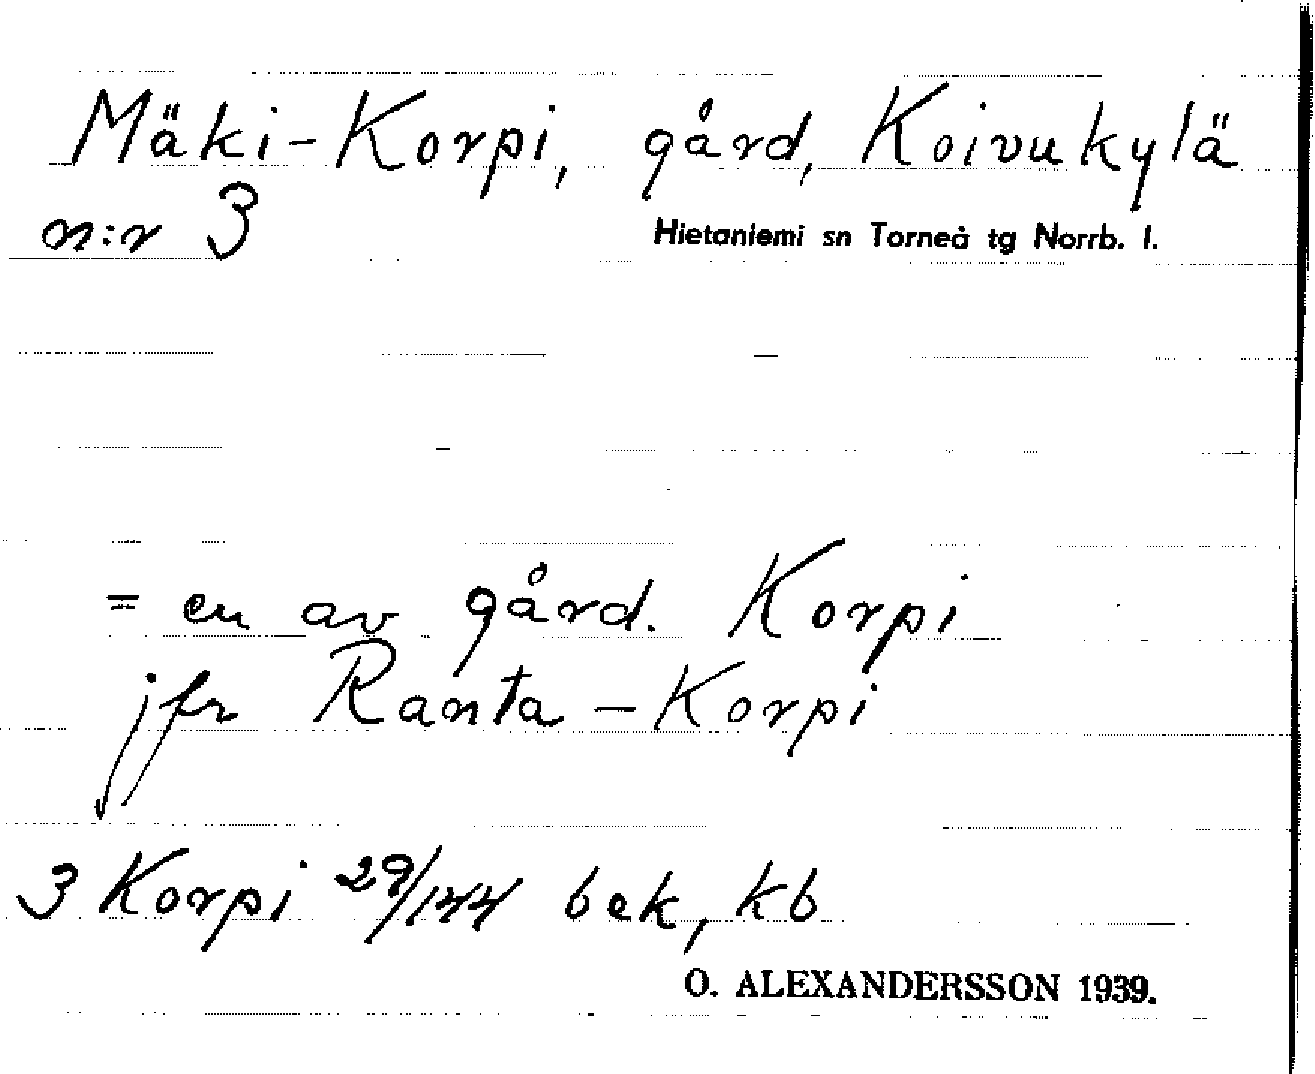 Mäki-Korpi, gård, Koivukylä
n:r 3
Hietaniemi sn Torneå tg Norrb. l.
= en av gård. Korpi
jfr Ranta-Korpi
3 Korpi 29/144 bek, kb
O. ALEXANDERSSON 1939.